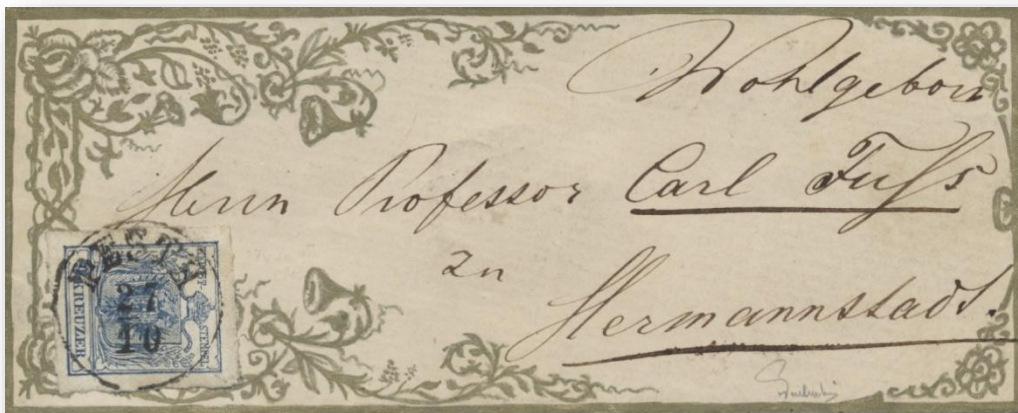 Wohlgeborn
Herrn Professor Carl Fuſs
zu
Hermannstadt.
PESTH
27
10
KREUZER
STEMPEL